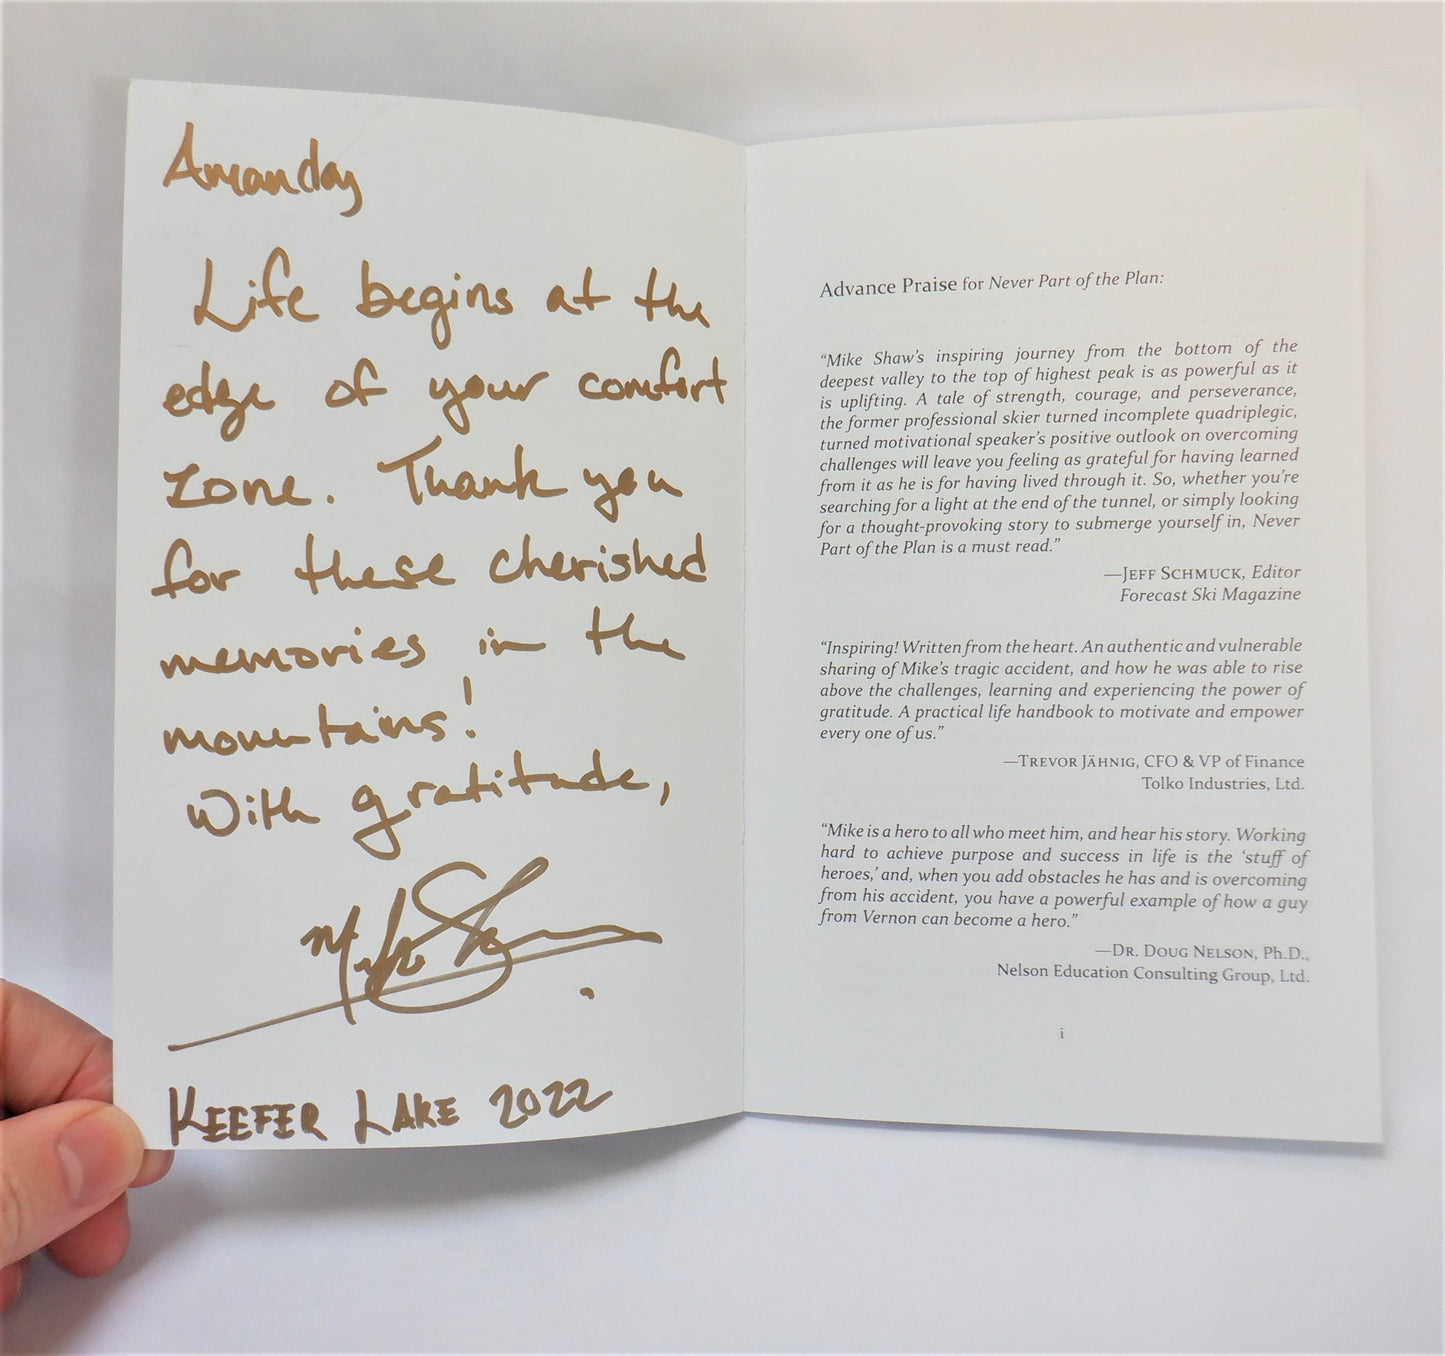 Amanda,
Life begins at the
edge of your comfort
zone. Thank you
for these cherished
memories in the
mountains!
With gratitude,
Mike Shaw
KEEFER LAKE 2022
Advance Praise for Never Part of the Plan:
“Mike Shaw’s inspiring journey from the bottom of the
deepest valley to the top of highest peak is as powerful as it
is uplifting. A tale of strength, courage, and perseverance,
the former professional skier turned incomplete quadriplegic,
turned motivational speaker’s positive outlook on overcoming
challenges will leave you feeling as grateful for having learned
from it as he is for having lived through it. So, whether you’re
searching for a light at the end of the tunnel, or simply looking
for a thought-provoking story to submerge yourself in, Never
Part of the Plan is a must read.”
—JEFF SCHMUCK, Editor
Forecast Ski Magazine
“Inspiring! Written from the heart. An authentic and vulnerable
sharing of Mike’s tragic accident, and how he was able to rise
above the challenges, learning and experiencing the power of
gratitude. A practical life handbook to motivate and empower
every one of us.”
—TREVOR JÄHNIG, CFO & VP of Finance
Tolko Industries, Ltd.
“Mike is a hero to all who meet him, and hear his story. Working
hard to achieve purpose and success in life is the ‘stuff of
heroes,’ and, when you add obstacles he has and is overcoming
from his accident, you have a powerful example of how a guy
from Vernon can become a hero.”
—DR. DOUG NELSON, Ph.D.,
Nelson Education Consulting Group, Ltd.
i